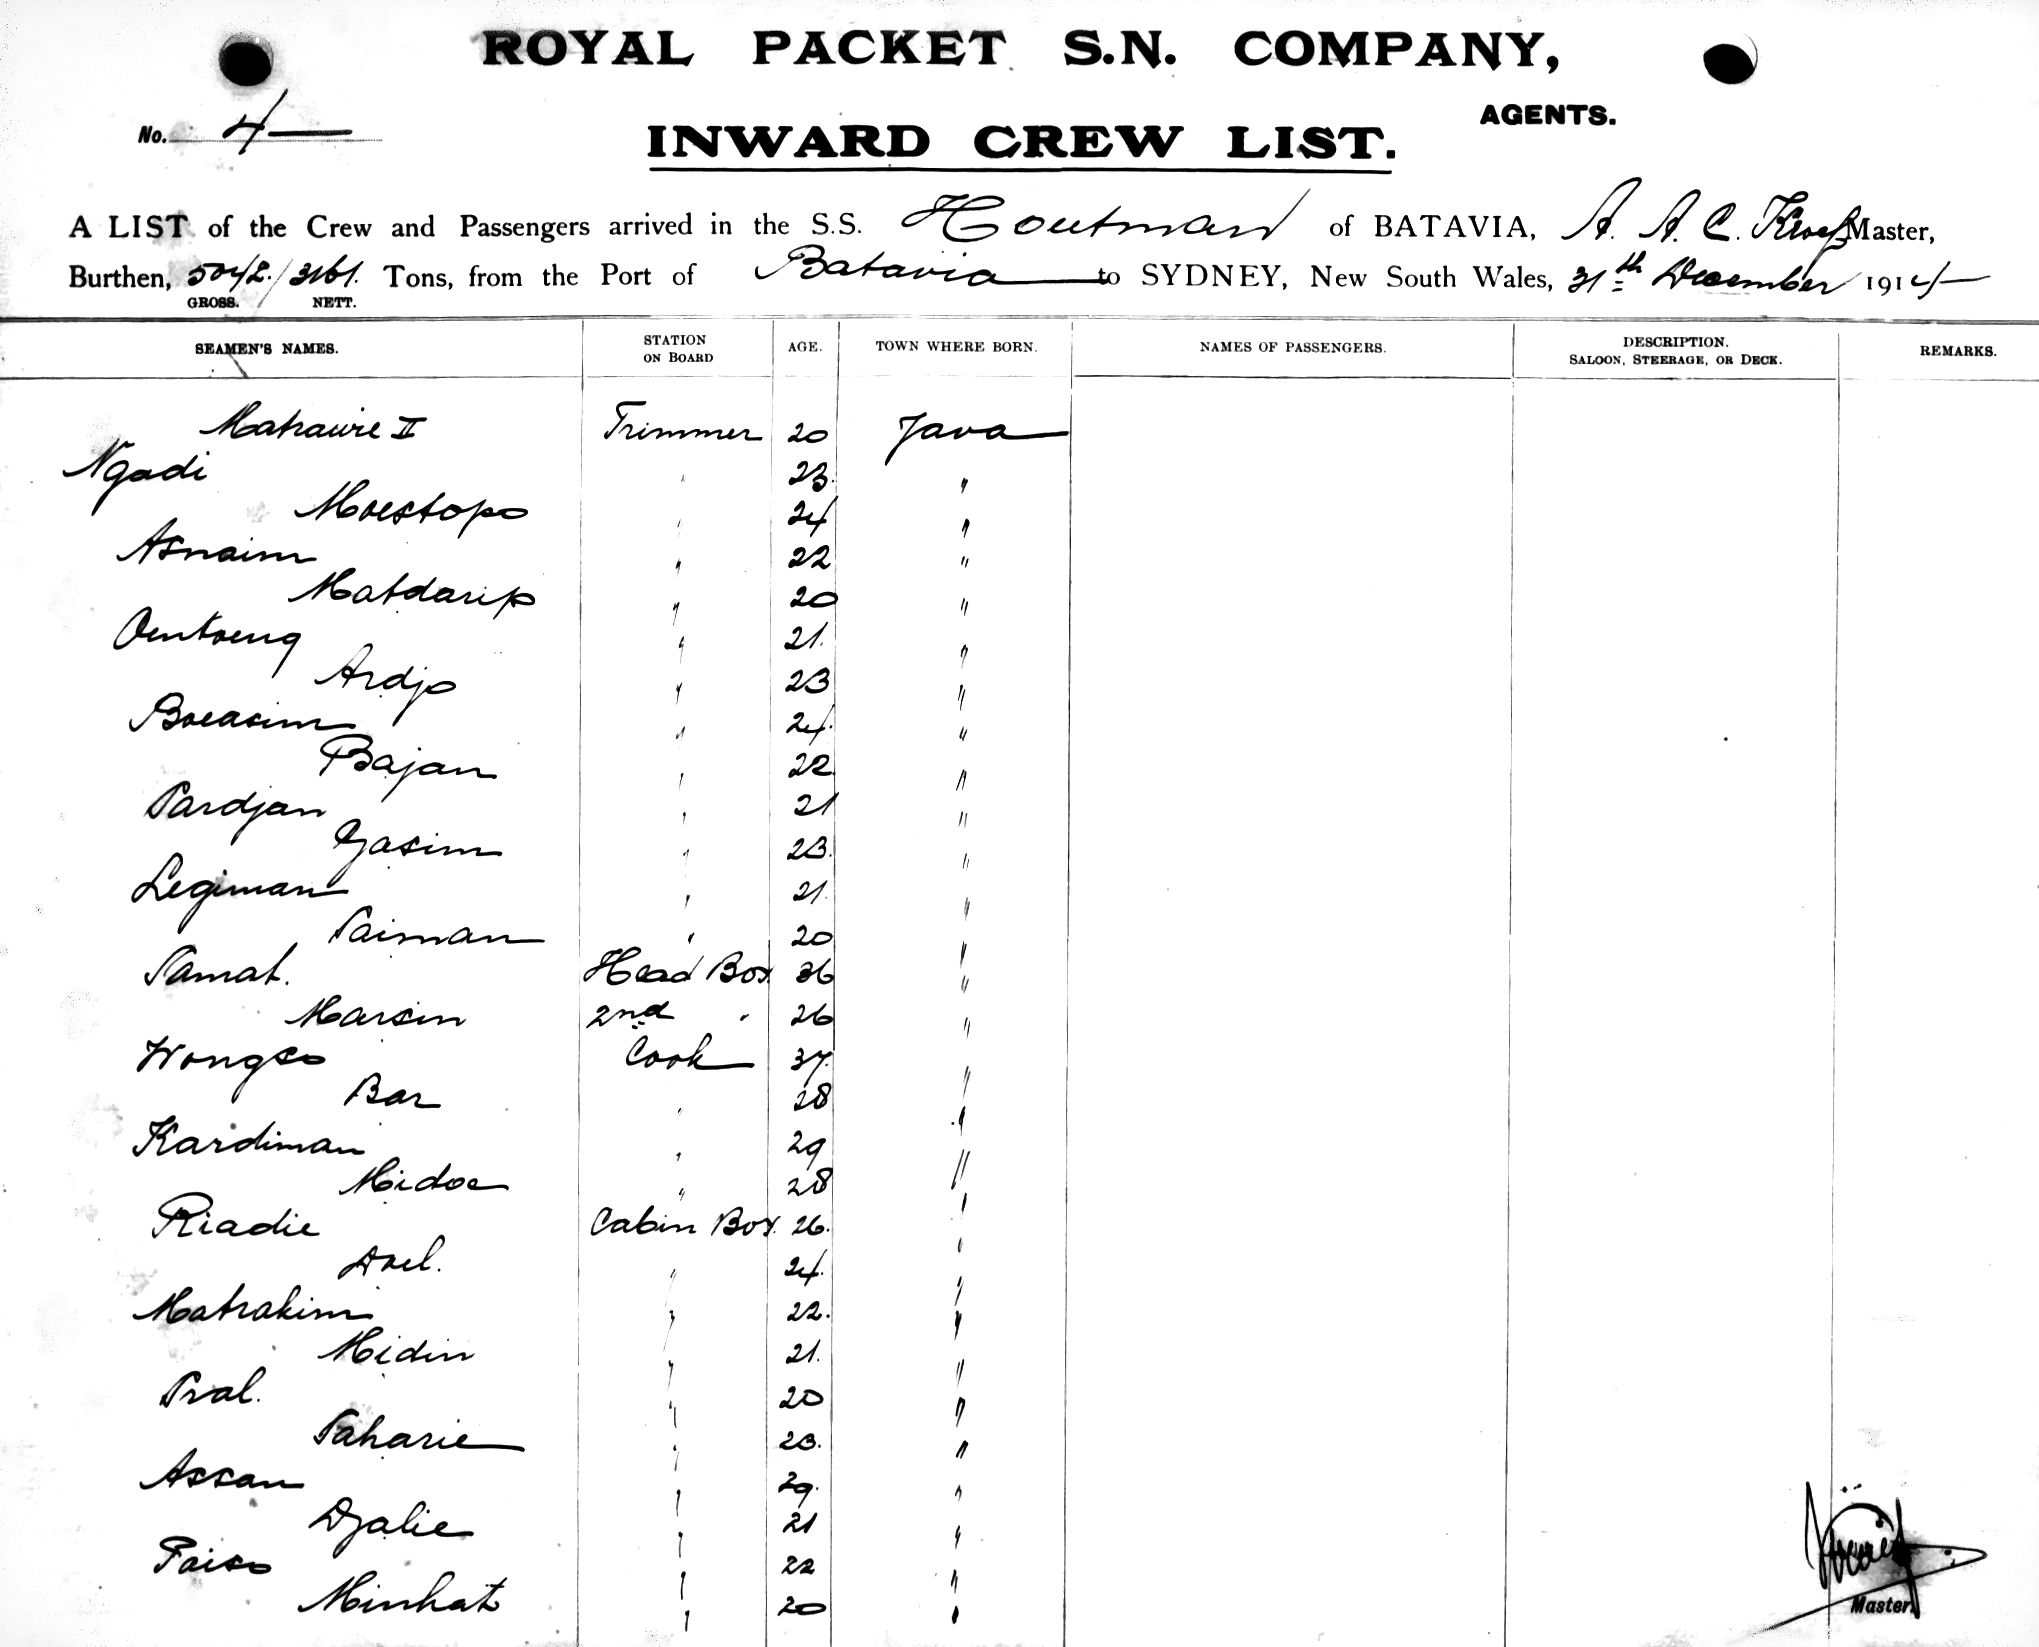 ROYAL PACKET S.N. COMPANY,
AGENTS.
No. 4
INWARD CREW LIST.
A LIST of the Crew and Passengers arrived in the S.S. Houtman of BATAVIA, A. A. C. Master,
Burthen, 5042./3161. Tons, from the Port of Batavia to SYDNEY, New South Wales, 31th December 1914
GROSS. NETT.
SEAMEN'S NAMES. STATION ON BOARD AGE. TOWN WHERE BORN. NAMES OF PASSENGERS. DESCRIPTION. SALOON, STEERAGE, OR DECK. REMARKS.
Matrawie II Trimmer 20 Java
Ngadi " 23 "
Moestopo " 24 "
Asnaim " 22 "
Matdarip " 20 "
Oentoeng " 21. "
Ardjo " 23 "
Boeasim " 24. "
Bajan " 22 "
Pardjan " 21 "
Gasim " 23. "
Legiman " 21. "
Paiman " 20 "
Pamat. Head Boy 36 "
Marsin 2nd " 26 "
Wongso Cook 37. "
Bar " 28 "
Kardiman " 29 "
Midoe " 28 "
Riadie Cabin Boy. 26. "
Doel. " 24. "
Matrakim " 22. "
Midin " 21. "
Pral. " 20 "
Saharie " 23. "
Assan " 29. "
Djalie " 21 "
Paiso " 22 "
Minhat " 20 "
Master.